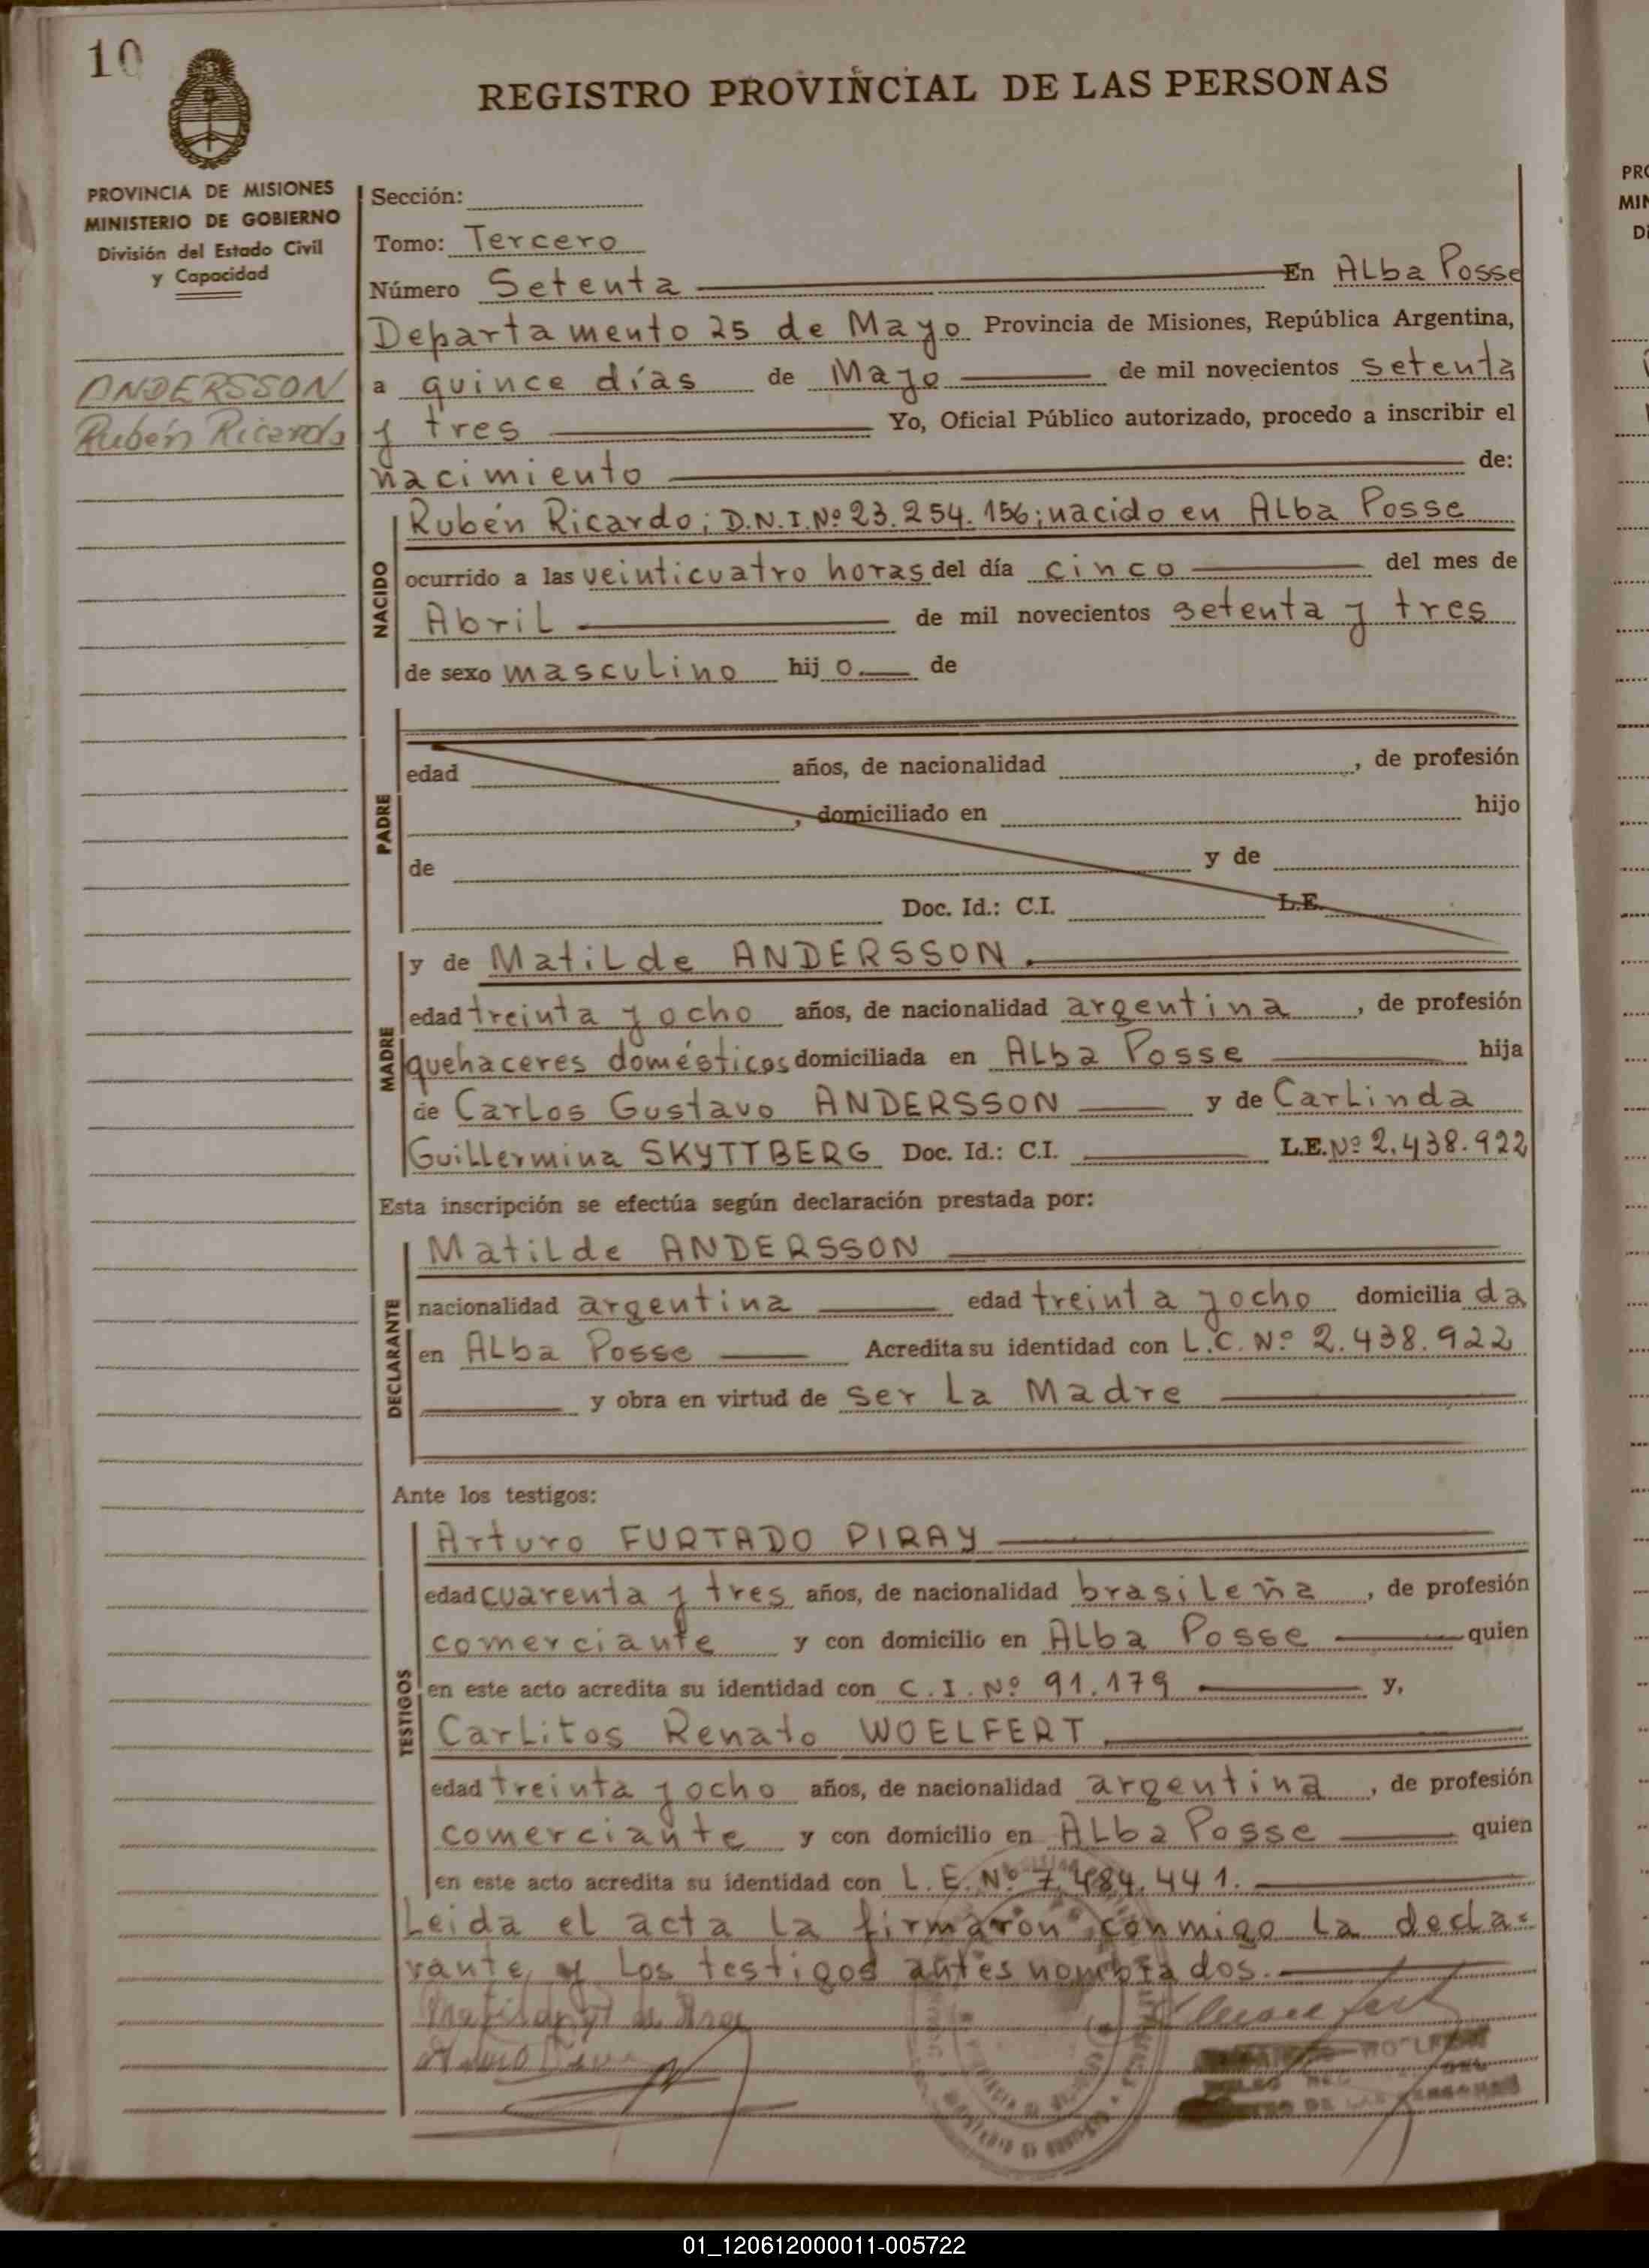 10
REGISTRO PROVINCIAL DE LAS PERSONAS
PROVINCIA DE MISIONES
MINISTERIO DE GOBIERNO
División del Estado Civil
y Capacidad
ANDERSSON
Rubén Ricardo
Sección:
Tomo: Tercero
Número Setenta En Alba Posse
Departamento 25 de Mayo Provincia de Misiones, República Argentina,
a quince días de Mayo de mil novecientos setenta
y tres Yo, Oficial Público autorizado, procedo a inscribir el
nacimiento de:
NACIDO
Rubén Ricardo; D.N.I.Nº 23.254.156; nacido en Alba Posse
ocurrido a las veinticuatro horas del día cinco del mes de
Abril de mil novecientos setenta y tres
de sexo masculino hijo de
PADRE
edad años, de nacionalidad , de profesión
, domiciliado en hijo
de y de
Doc. Id.: C.I. L.E.
MADRE
y de Matilde ANDERSSON.
edad treinta y ocho años, de nacionalidad argentina , de profesión
quehaceres domésticos domiciliada en Alba Posse hija
de Carlos Gustavo ANDERSSON y de Carlinda
Guillermina SKYTTBERG Doc. Id.: C.I. L.E. Nº 2.438.922
Esta inscripción se efectúa según declaración prestada por:
DECLARANTE
Matilde ANDERSSON
nacionalidad argentina edad treinta y ocho domiciliada
en Alba Posse Acredita su identidad con L.C. Nº 2.438.922
y obra en virtud de ser la Madre
Ante los testigos:
TESTIGOS
Arturo FURTADO PIRAY
edad cuarenta y tres años, de nacionalidad brasileña , de profesión
comerciante y con domicilio en Alba Posse quien
en este acto acredita su identidad con C.I. Nº 91.179 y,
Carlitos Renato WOELFERT
edad treinta y ocho años, de nacionalidad argentina , de profesión
comerciante y con domicilio en Alba Posse quien
en este acto acredita su identidad con L.E. Nº 7.484.441.
Leida el acta la firmaron conmigo la decla=
rante y los testigos antes nombrados.
01_120612000011-005722